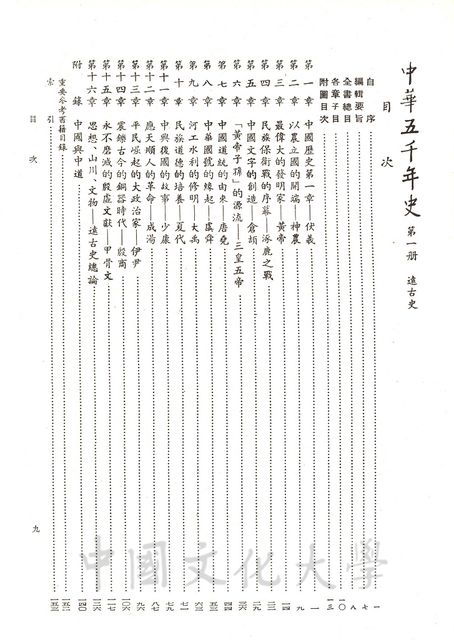 中華五千年史 第一册 遠古史
目次
自序 一
編輯要旨 七
全書總目 八
各章子目 一〇
附圖目次 一三
第一章 中國歷史第一章——伏羲 一
第二章 以農立國的開端——神農 九
第三章 最偉大的發明家——黃帝 一四
第四章 民族保衛戰的序幕——涿鹿之戰
第五章 中國文字的創造——倉頡
第六章 「黃帝子孫」的源流——三皇五帝
第七章 中國道統的由來——唐堯
第八章 中華國號的緣起——虞舜
第九章 河工水利的修明——大禹
第十章 民族道德的培養——夏代
第十一章 中興復國的故事——少康
第十二章 應天順人的革命——成湯 八七
第十三章 平民崛起的大政治家——伊尹 九六
第十四章 震鑠古今的銅器時代——殷商 一〇六
第十五章 永不磨滅的殷虛文獻——甲骨文
第十六章 思想、山川、文物——遠古史總論
附錄 中國與中道 一四〇
重要參考書籍目錄
索引
目次
九
中國文化大學